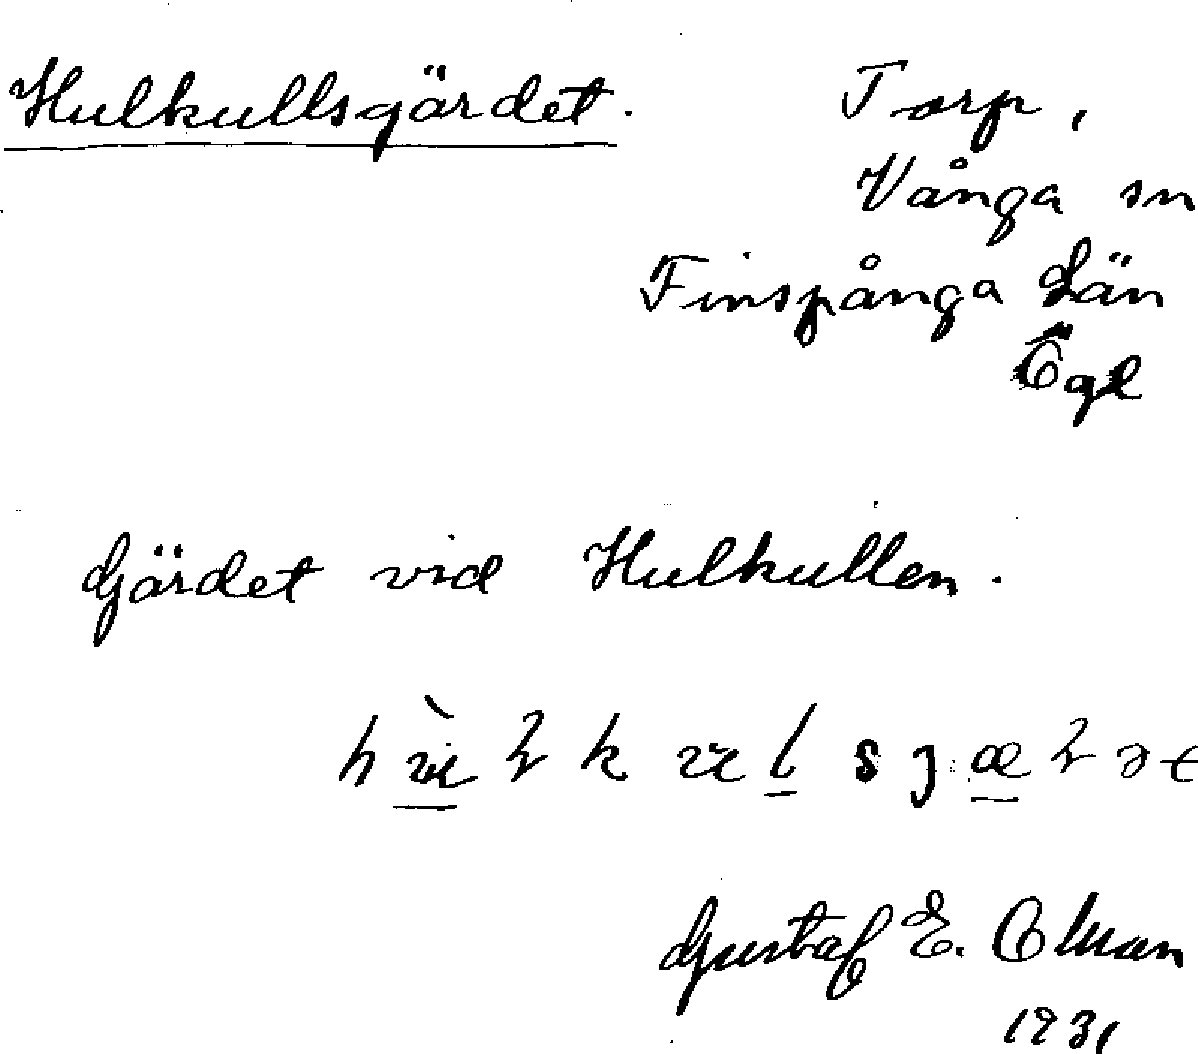 Hulkullsgärdet. Torp,
Vånga sn
Finspånga Län
Ögl
Gärdet vid Hulkullen.
Gustaf E. Olman
1931